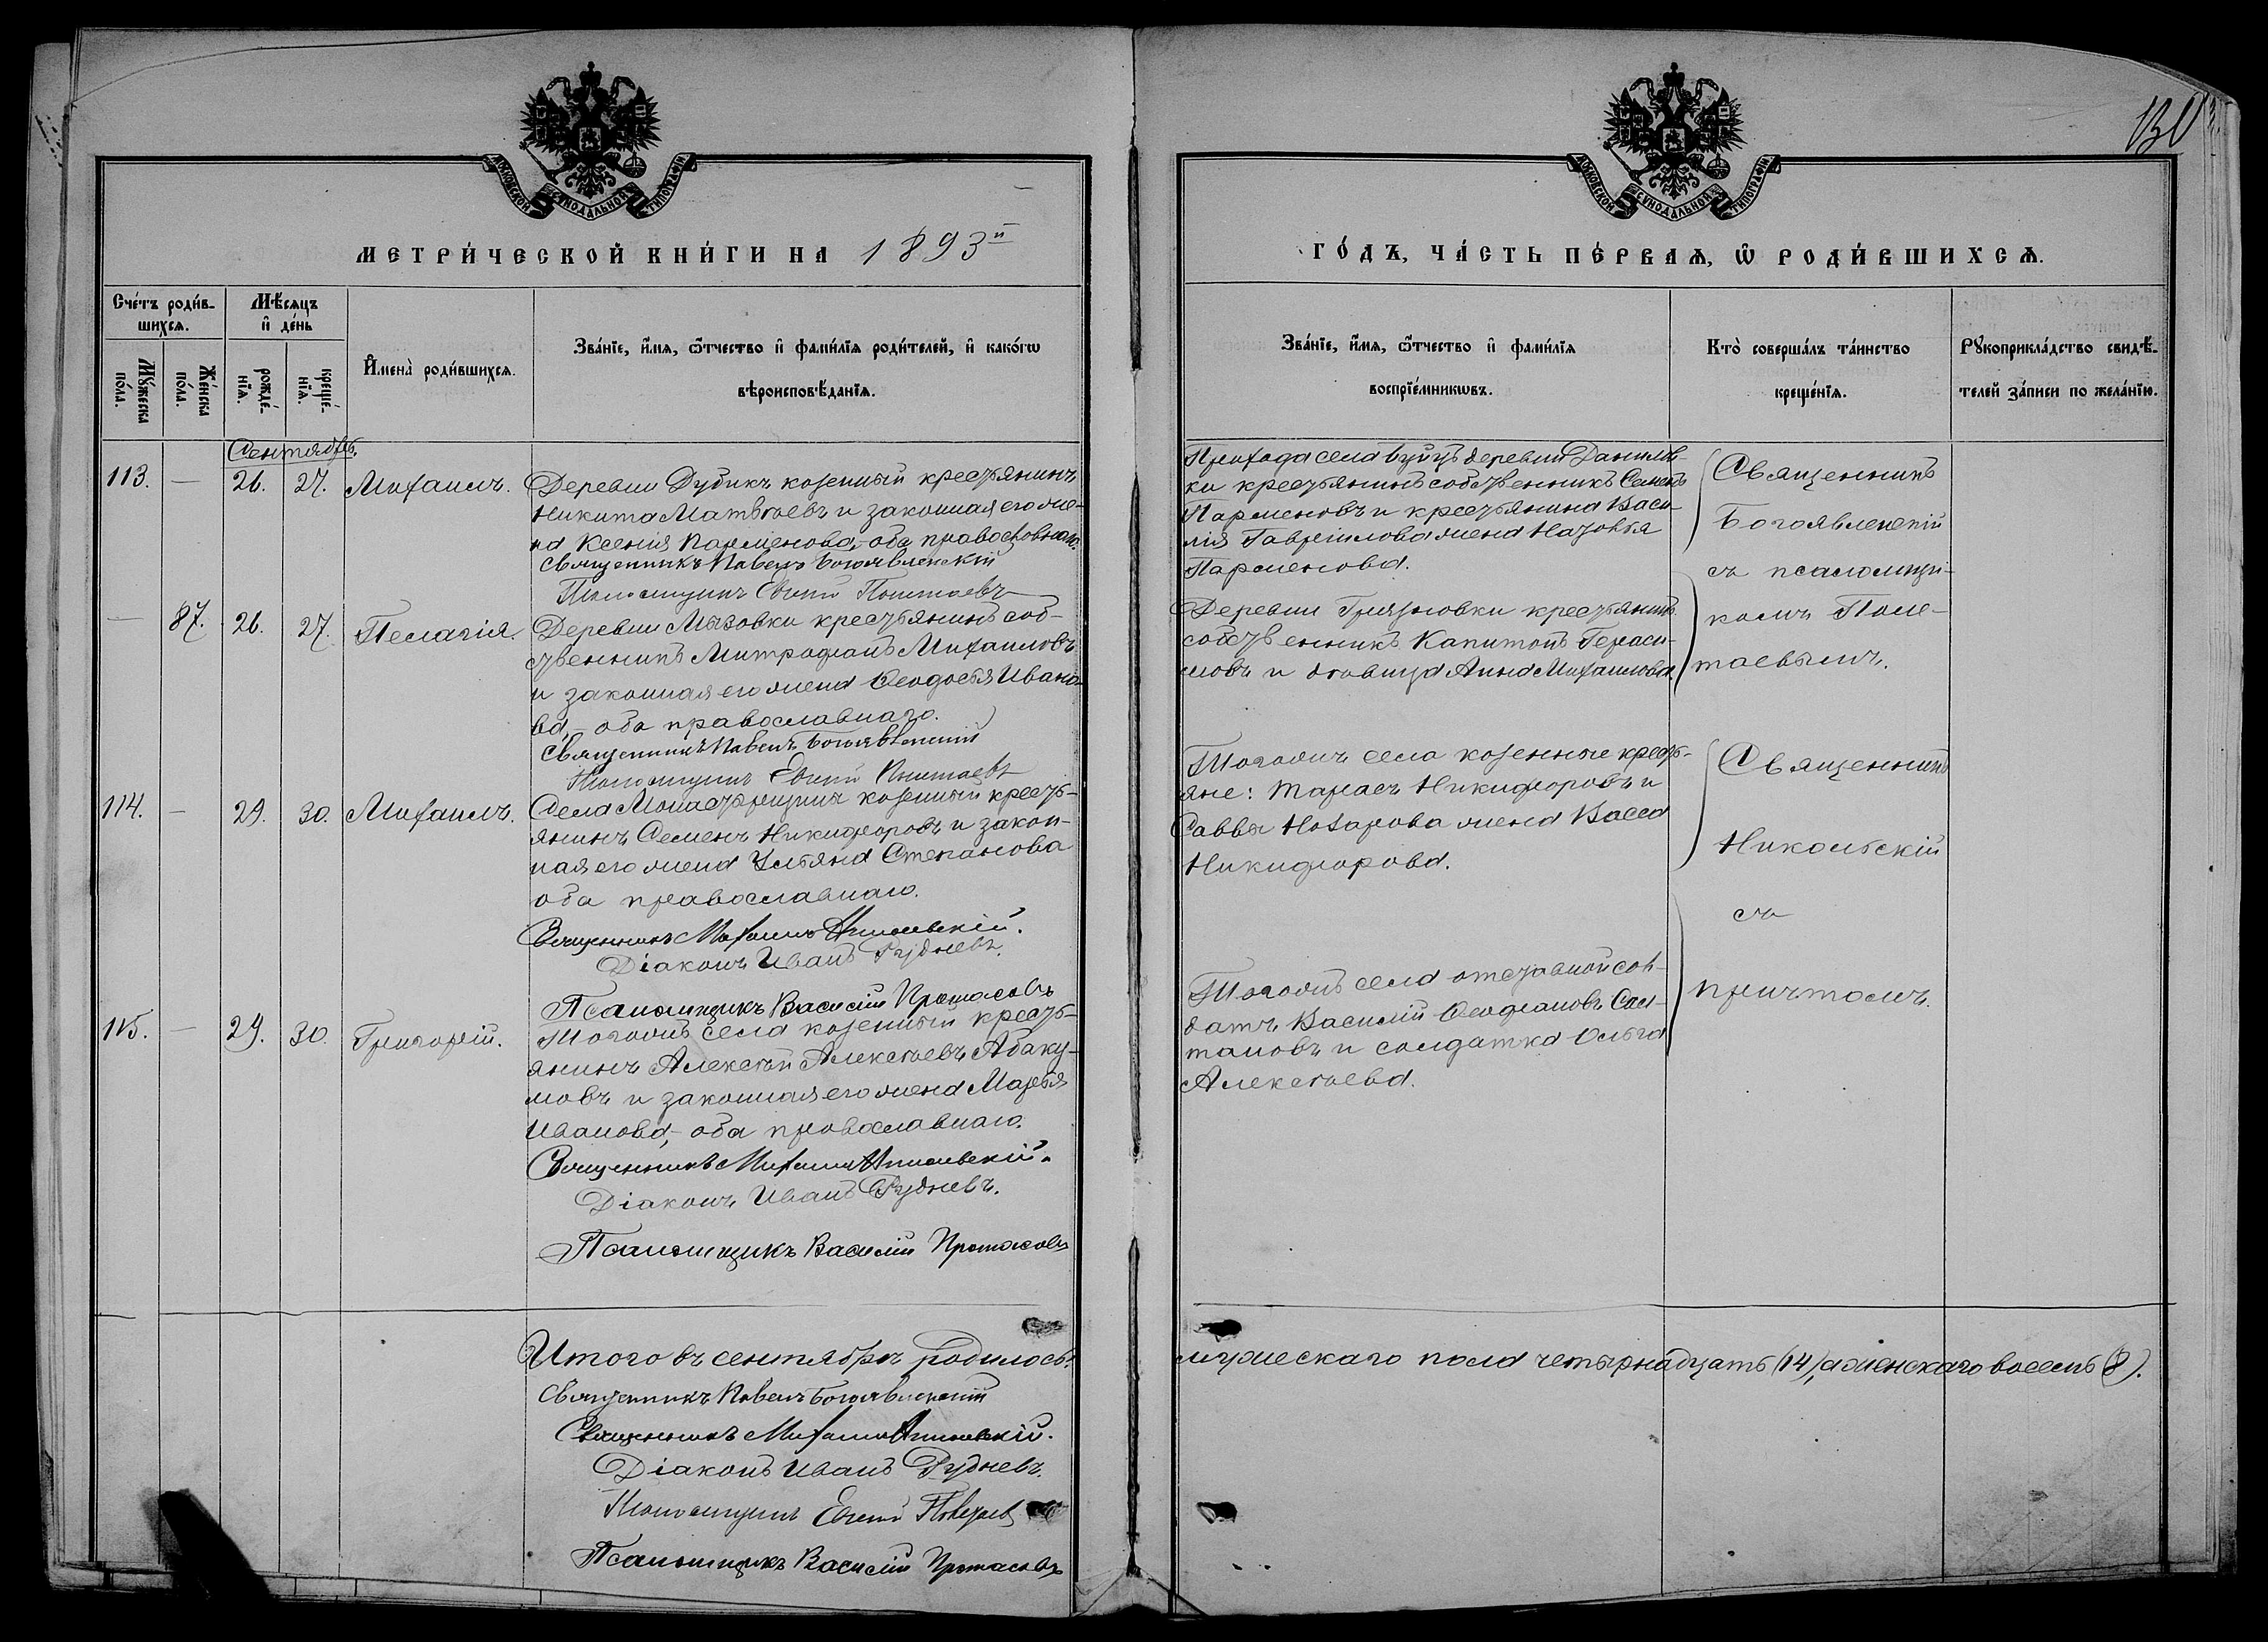 130
МОСКОВСКОЙ СѴНОДАЛЬНОЙ ТИПОГРАФІИ
МОСКОВСКОЙ СѴНОДАЛЬНОЙ ТИПОГРАФІИ
МЕТРИ́ЧЕСКОЙ КНИ́ГИ НА 1893й
ГО́ДЪ, ЧА́СТЬ ПЕ́РВАѦ, Ѡ҆ РОДИ́ВШИХСѦ.
Сче́тъ роди́в-
шихсѧ.
Мѣ́сѧцъ
и҆ де́нь
Мꙋ́жеска
по́ла.
Же́нска
по́ла.
рожде́-
нїѧ.
креще́-
нїѧ.
И҆мена̀ роди́вшихсѧ.
Зва́нїе, и҆́мѧ, ѻ҆́тчество и҆ фами́лїѧ роди́телей, и҆ како́гѡ
вѣроисповѣ́данїѧ.
Зва́нїе, и҆́мѧ, ѻ҆́тчество и҆ фами́лїѧ
воспрїе́мникѡвъ.
Кто̀ соверша́лъ та́инство
креще́нїѧ.
Рꙋкоприкла́дство свидѣ́-
телей за́писи по жела́нїю.
Сентябрь.
113. — 26. 27. Михаилъ.
Деревни Дубикъ козенный крестьянинъ
Никита Матвѣевъ и законная его же-
на Ксенія Парменова, оба православнаго.
Священникъ Павелъ Богоявленскій
Псаломщикъ
Прихода села деревни Данилов-
ки крестьянинъ собственникъ Семенъ
Парменовъ и крестьянина Васи-
лія Гавріилова жена
Парменова.
Священникъ
Богоявленскій
съ псаломщи-
комъ Поле-
таевымъ.
— 87. 26. 27. Пелагія.
Деревни Мызовки крестьянинъ соб-
ственникъ Митрофанъ Михаиловъ
и законная его жена Ѳеодосья Ивано-
ва, оба православнаго.
Священникъ Павелъ Богоявленскій
Псаломщикъ
Деревни Грязновки крестьянинъ
собственникъ Капитонъ Гераси-
мовъ и дѣвица Анна Михаилова.
114. — 29. 30. Михаилъ.
Села Монастырщины козенный кресть-
янинъ Семенъ Никифоровъ и закон-
ная его жена Ульяна Степанова
оба православнаго.
Священникъ Михаилъ Никольскій.
Діаконъ Иванъ Рудневъ.
Псаломщикъ Василій Протасовъ
Тогожъ села козенные кресть-
яне: Тарасъ Никифоровъ и
Саввы Назарова жена Васса
Никифорова.
Священникъ
Никольскій
съ
причтомъ.
115. — 29. 30. Григорій.
Тогожъ села козенный кресть-
янинъ Алексѣй Алексѣевъ Абаку-
мовъ и законная его жена Марья
Иванова, оба православнаго.
Священникъ Михаилъ Никольскій.
Діаконъ Иванъ Рудневъ.
Псаломщикъ Василій Протасовъ
Тогожъ села отставной сол-
датъ Василій Ѳеофановъ Сал-
тановъ и солдатка Ольга
Алексѣева.
Итого въ сентябрѣ родилось:
мужескаго пола четырнадцать (14), а женскаго восемь (8).
Священникъ Павелъ Богоявленскій
Священникъ Михаилъ Никольскій.
Діаконъ Иванъ Рудневъ.
Псаломщикъ
Псаломщикъ Василій Протасовъ